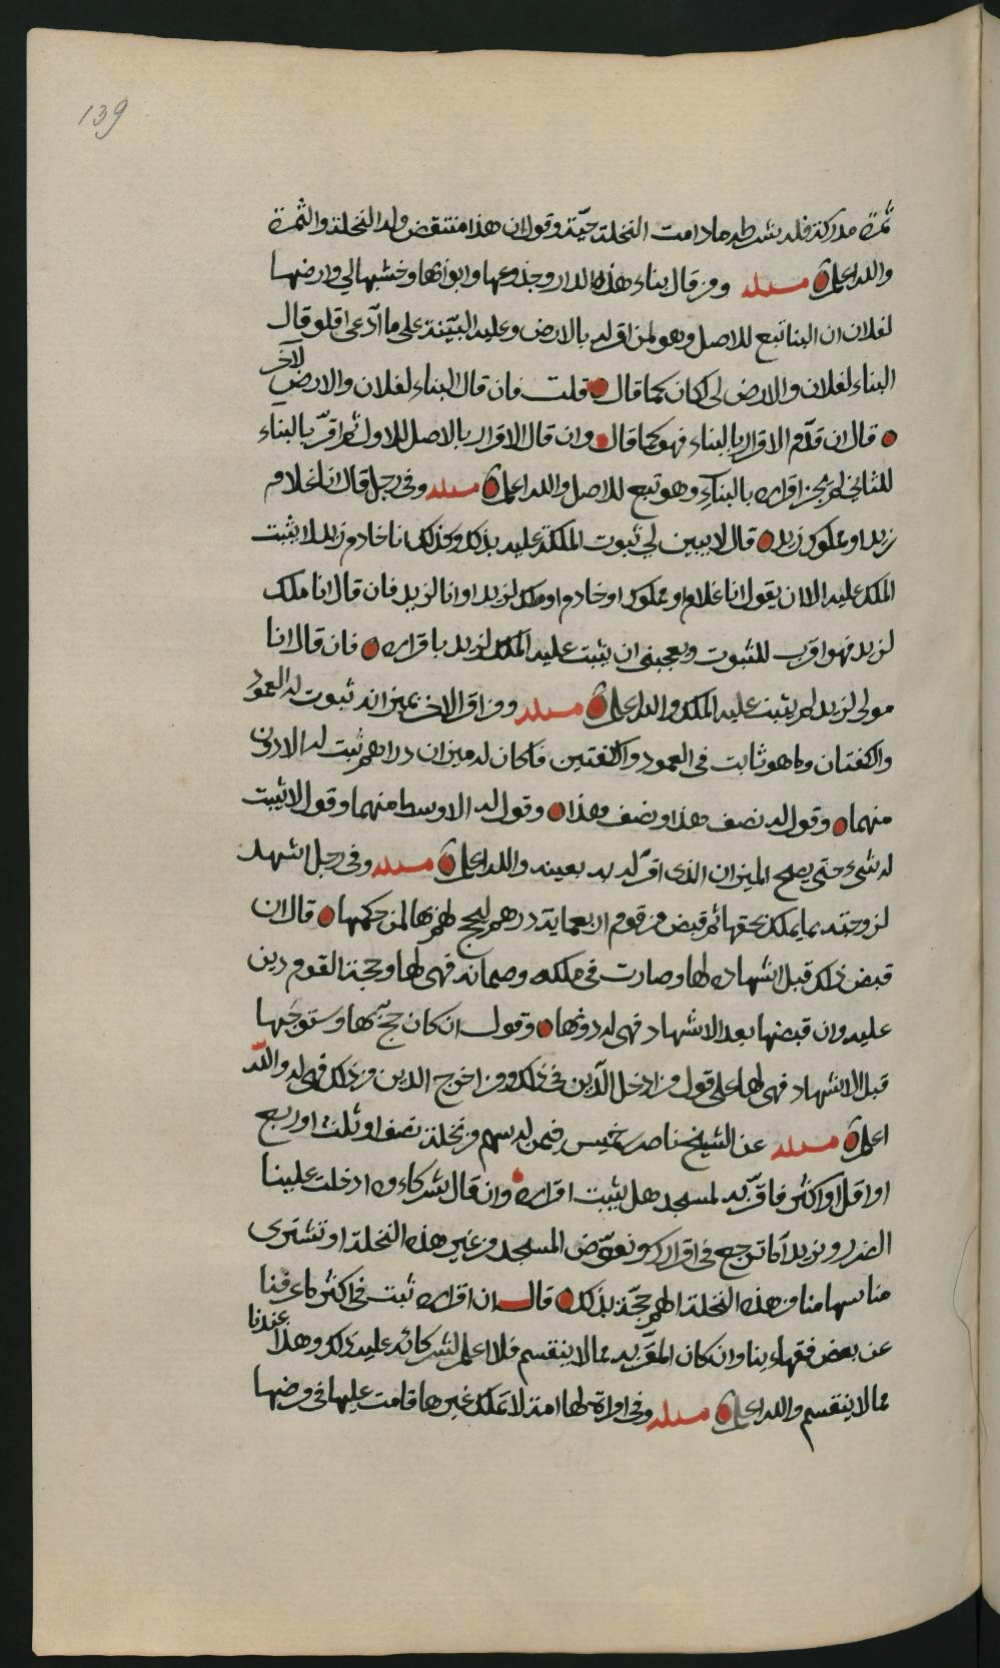 139
ثمرة مدركة فله شرطه ما دامت النخلة حيّة وقول ان هذا منتقض وله النخلة والثمرة
والله اعلم مسئلة ومن قال بناء هذه الدار وجذوعها وابوابها وخشبها لي وارضها
لفلان ان البنا تبع للاصل وهو لمن اقر له بالارض وعليه البيّنة على ما ادّعى اقلو قال
البناء لفلان والارض لي لكان كما قال قلت فان قال البناء لفلان والارض لآخر
قال ان قدّم الاقرار بالبناء فهو كما قال وان قال الاقرار بالاصل للاول ثم اقرّ بالبناء
للثاني لم يجز اقراره بالبناء وهو تبع للاصل والله اعلم مسئلة وفي رجل قال انا غلام
زيد او مملوك زيد قال لا يبين لي ثبوت الملكة عليه بذلك وكذلك انا خادم زيد لا يثبت
الملك عليه الا ان يقول انا غلام او مملوك او خادم او ملك لزيد او انا لزيد فان قال انا ملك
لزيد فهو اقرب للثبوت ويعجبني ان يثبت عليه الملك لزيد باقراره فان قال انا
مولى لزيد لم يثبت عليه الملك والله اعلم مسئلة ومن اقر لاخر بميزانه ثبوت له العمود
والكفتان وما هو ثابت في العمود والكفتين فاكان له ميزان دراهم ثبت له الادون
منهما وقول له نصف هذا ونصف هذا وقول له الاوسط منهما وقول لا يثبت
له شيء حتى يصح الميزان الذى اقرّ له به بعينه والله اعلم مسئلة وفي رجل اشهد
لزوجته بما يملكه بحقها ثم قبض من قوم اربعماية درهم ليحج لهم بها لمن حكمها قال ان
قبض ذلك قبل اشهاده لها وصارت في ملكه وضمانه فهى لها وحجة القوم دين
عليه وان قبضها بعد الاشهاد فهى له دونها وقول ان كان حج بها وستوجبها
قبل الاشهاد فهى لها على قول من ادخل الدّين في ذلك ومن اخرج الدين من ذلك فهى له والله
اعلم مسئلة عن الشيخ ناصر بن خميس فيمن له سهم من نخلة نصف او ثلث او ربع
او اقل او اكثر فاقرّ به لمسجد هل يثبت اقراره وان قال شركاءه ادخلت علينا
الضرر ونريد اما ترجع في اقرارك ونعوّض المسجد من غير هذه النخلة او تشترى
منا سهامنا من هذه النخلة الهم حجّة بذلك قال ان اقراره ثبت في اكثر ما عرفنا
عن بعض فقهاءنا وان كان المقرّ به مما لا ينقسم فلا اعلم لشركائه عليه ذلك وهذا عندنا
مما لا ينقسم والله اعلم مسئلة وفي امراة لها امة لا تملك غيرها قامت عليها في مرضها